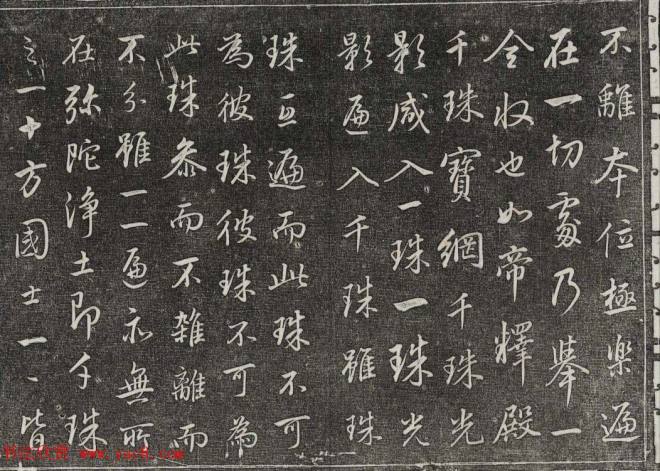 不離本位極樂遍
在一切處乃舉一
全收也如帝釋殿
千珠寶網千珠光
影咸入一珠一珠光
影遍入千珠雖珠
珠互遍而此珠不可
為彼珠彼珠不可為
此珠參而不雜離而
不分雖一一遍亦無所
在弥陀淨土即千珠
之一十方國土一一皆
书法欣赏 www.yac8.com